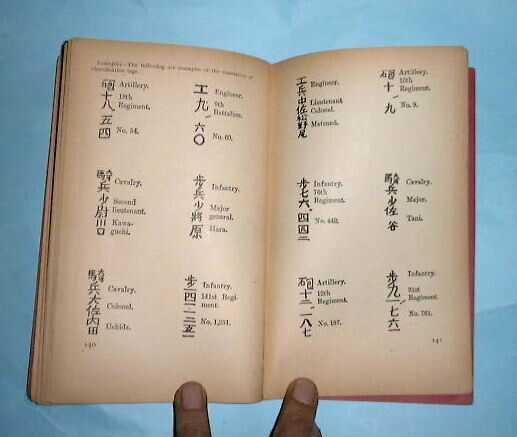 Examples.—The following are examples of the translation of
tags.
砲十八、五四
Artillery.
18th
Regiment.
No. 54.
工九、六〇
Engineer.
9th
Battalion.
No. 60.
騎兵少尉川口
Cavalry.
Second
lieutenant.
Kawa-
guchi.
歩兵少將原
Infantry.
Major
general.
Hara.
騎兵大佐内田
Cavalry.
Colonel.
Uchida.
Infantry.
141st Regi-
ment.
140
工兵中佐松野尾
Engineer.
Lieutenant
Colonel.
砲十、九
Artillery.
10th
Regiment.
No. 9.
歩七六、四四二
Infantry.
76th
Regiment.
No. 442.
騎兵少佐谷
Cavalry.
Major.
Tani.
砲十二、一八七
Artillery.
12th
Regiment.
No. 187.
歩九一、七六一
Infantry.
91st
Regiment.
No. 761.
141